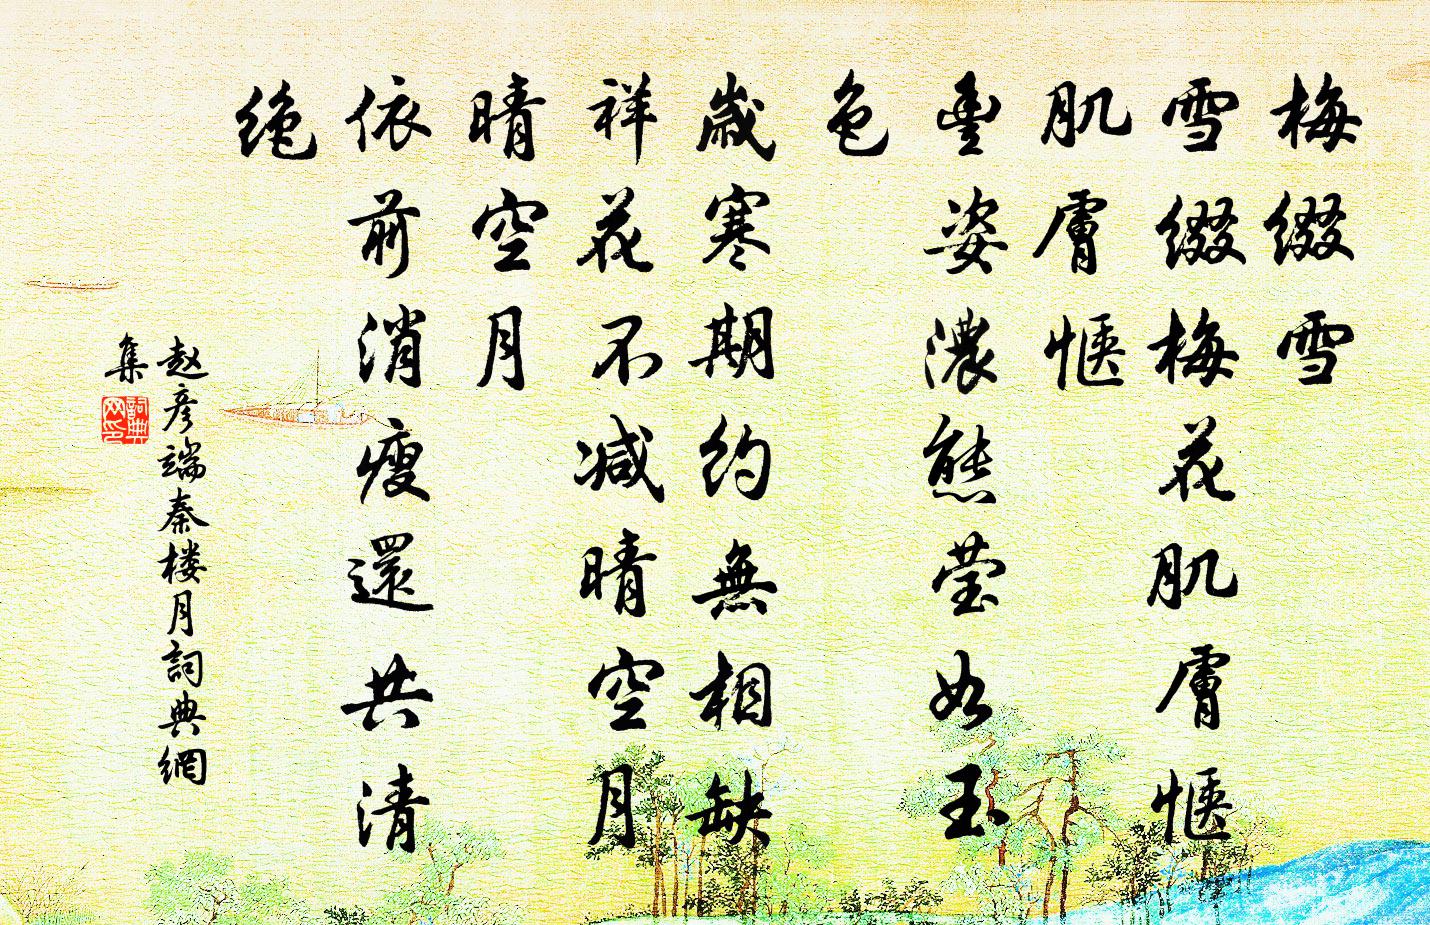 梅綴雪
雪綴梅花肌膚愜
肌膚愜
豐姿濃態瑩如玉
色
歲寒期約無相缺
祥花不减晴空月
晴空月
依前消瘦還共清
绝
赵彦端秦楼月詞典網
集
詞典网印